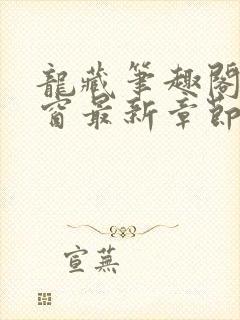 龍藏筆趣閣
窗最新章節
宣蕪